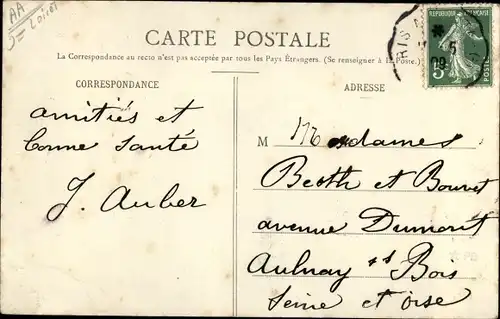 AA
CARTE POSTALE
La Correspondance au recto n'est pas acceptée par tous les Pays Étrangers. (Se renseigner à la Poste.)
CORRESPONDANCE
ADRESSE
RÉPUBLIQUE FRANÇAISE
5
09
amitiés et
bonne santé
J. Auber
M Mesdames
Berth et Bouvet
avenue Dumont
Aulnay s s Bois
Seine et oise